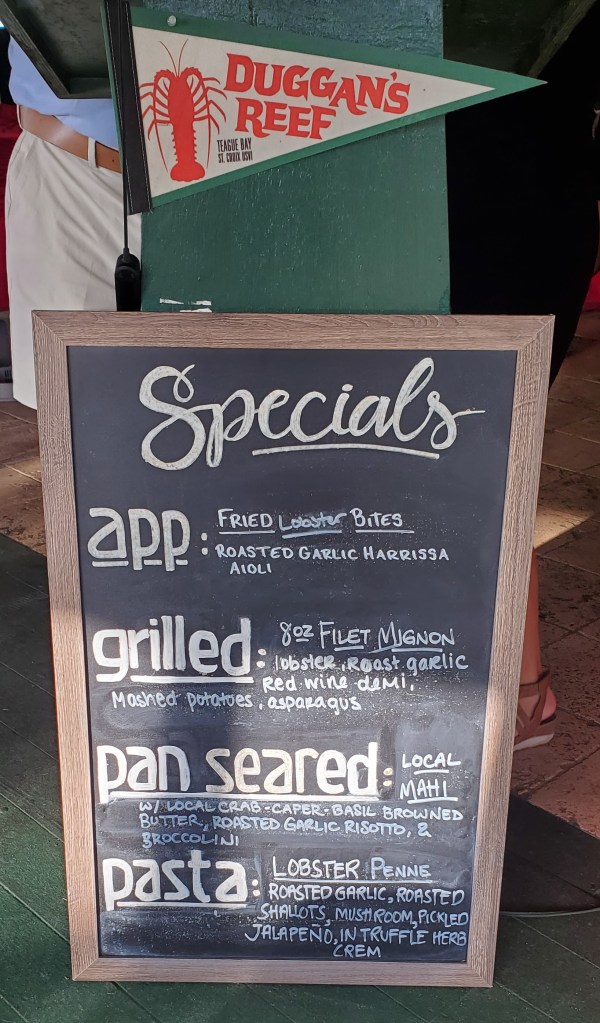 DUGGAN'S
REEF
TEAGUE BAY
ST. CROIX USVI
Specials
app: FRIED Lobster BITES
ROASTED GARLIC HARRISSA
AIOLI
grilled: 8oz FILET MIGNON
lobster, Roast garlic
Red wine demi,
Mashed potatoes, asparagus
pan seared: LOCAL
MAHI
W/ LOCAL CRAB-CAPER-BASIL BROWNED
BUTTER, ROASTED GARLIC RISOTTO, &
BROCCOLINI
pasta: LOBSTER PENNE
ROASTED GARLIC, ROASTED
SHALLOTS, MUSHROOM, PICKLED
JALAPEÑO, IN TRUFFLE HERB
CREM